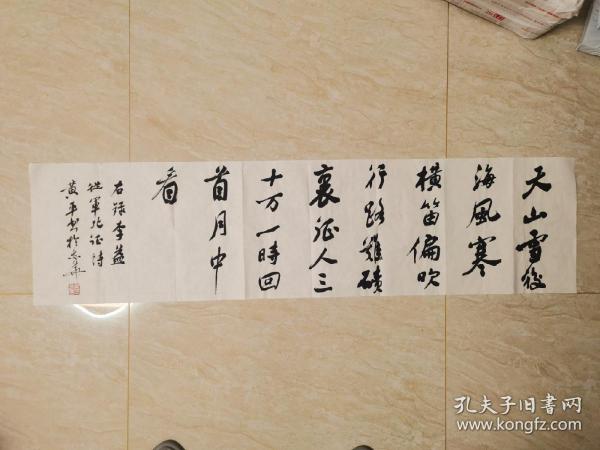 天山雪後
海風寒
橫笛偏吹
行路難磧
裏征人三
十万一時回
首月中
看
右錄李益
從軍北征詩
黄平书於
孔夫子旧书网
www.kongfz.com